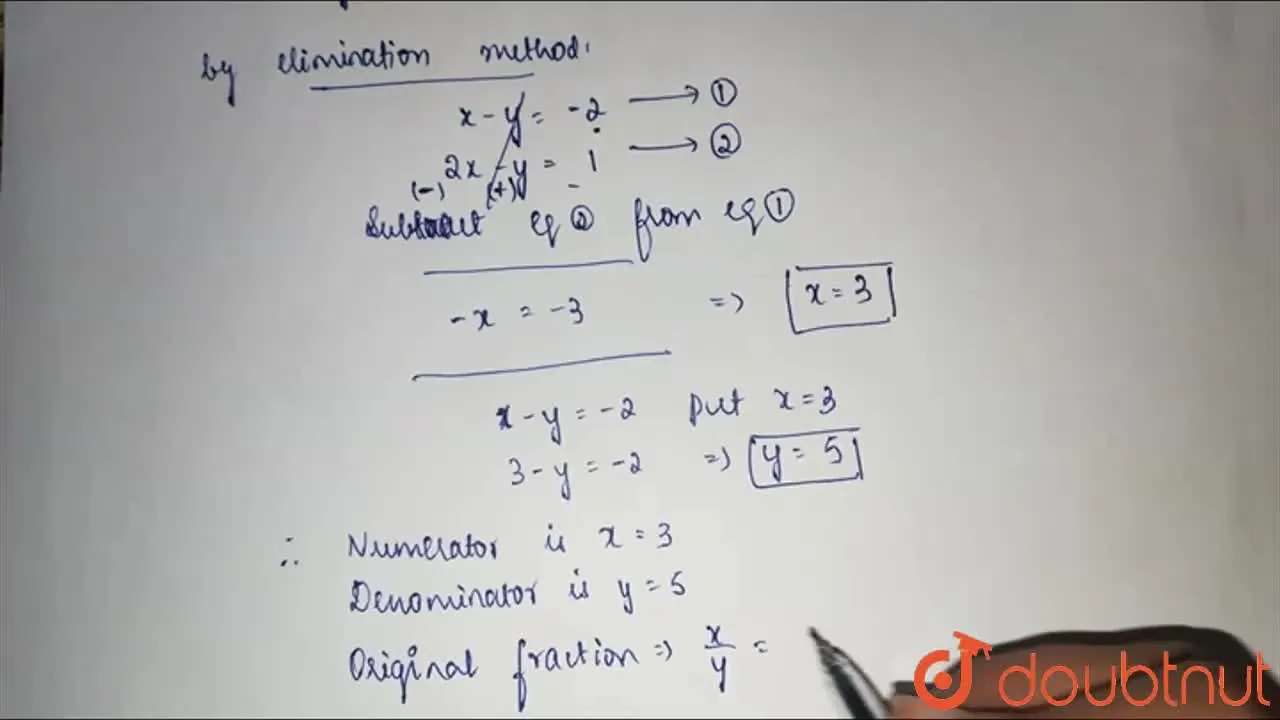 by elimination method.
x - y = -2 → ①
2x - y = 1 → ②
(-) (+) -
Subtract eq ② from eq ①
-x = -3 => x = 3
x - y = -2 put x = 3
3 - y = -2 => y = 5
∴ Numerator is x = 3
Denominator is y = 5
Original fraction => x/y =
doubtnut